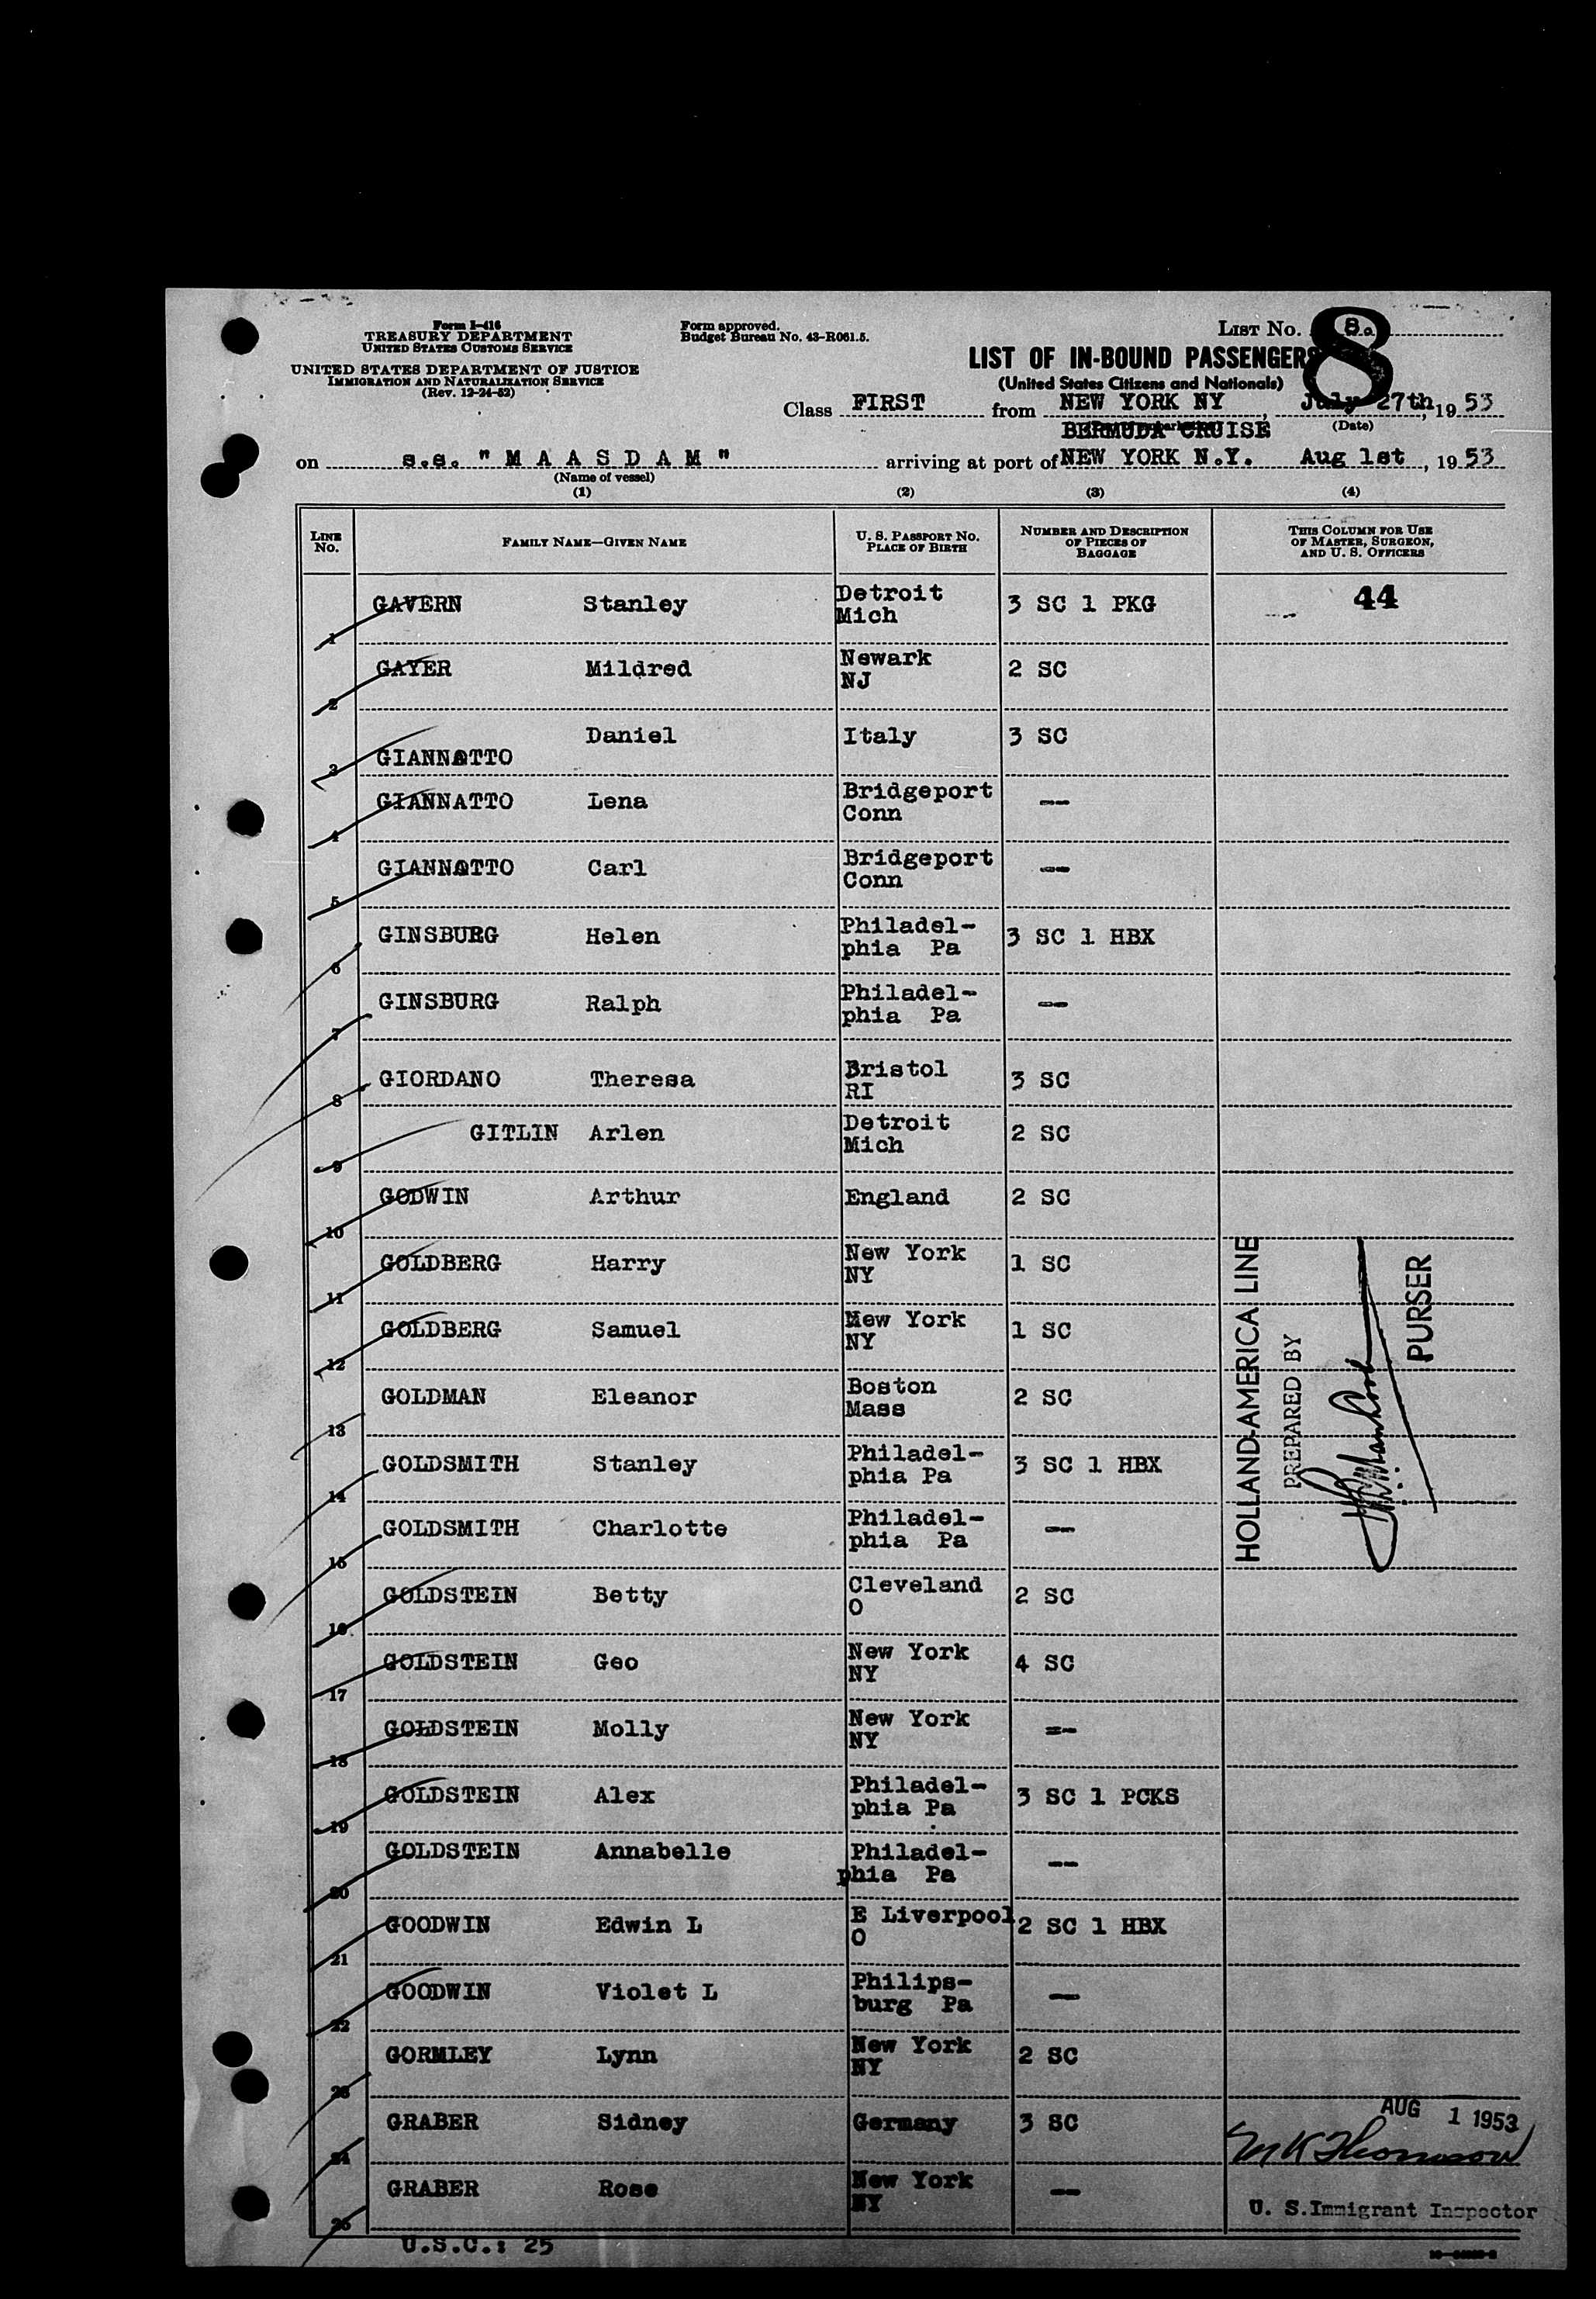 Form I-416
TREASURY DEPARTMENT
UNITED STATES CUSTOMS SERVICE
UNITED STATES DEPARTMENT OF JUSTICE
IMMIGRATION AND NATURALIZATION SERVICE
(Rev. 12-24-52)
Form approved.
Budget Bureau No. 43-R061.5.
LIST NO. 8a
8
LIST OF IN-BOUND PASSENGERS
(United States Citizens and Nationals)
Class FIRST from NEW YORK NY, July 27th, 1953
BERMUDA CRUISE (Date)
on s.s. "M A A S D A M" arriving at port of NEW YORK N.Y. Aug 1st, 1953
(Name of vessel)
(1) (2) (3) (4)
LINE NO. FAMILY NAME—GIVEN NAME U. S. PASSPORT NO. PLACE OF BIRTH NUMBER AND DESCRIPTION OF PIECES OF BAGGAGE THIS COLUMN FOR USE OF MASTER, SURGEON, AND U. S. OFFICERS
1 GAVERN Stanley Detroit Mich 3 SC 1 PKG 44
2 GAYER Mildred Newark NJ 2 SC
3 GIANNATTO Daniel Italy 3 SC
4 GIANNATTO Lena Bridgeport Conn --
5 GIANNATTO Carl Bridgeport Conn --
6 GINSBURG Helen Philadel- phia Pa 3 SC 1 HBX
7 GINSBURG Ralph Philadel- phia Pa --
8 GIORDANO Theresa Bristol RI 3 SC
9 GITLIN Arlen Detroit Mich 2 SC
10 GODWIN Arthur England 2 SC
11 GOLDBERG Harry New York NY 1 SC
12 GOLDBERG Samuel New York NY 1 SC
13 GOLDMAN Eleanor Boston Mass 2 SC
14 GOLDSMITH Stanley Philadel- phia Pa 3 SC 1 HBX
15 GOLDSMITH Charlotte Philadel- phia Pa --
16 GOLDSTEIN Betty Cleveland O 2 SC
17 GOLDSTEIN Geo New York NY 4 SC
18 GOLDSTEIN Molly New York NY --
19 GOLDSTEIN Alex Philadel- phia Pa 3 SC 1 PCKS
20 GOLDSTEIN Annabelle Philadel- phia Pa --
21 GOODWIN Edwin L E Liverpool O 2 SC 1 HBX
22 GOODWIN Violet L Philips- burg Pa --
23 GORMLEY Lynn New York NY 2 SC
24 GRABER Sidney Germany 3 SC
25 GRABER Rose New York NY --
HOLLAND-AMERICA LINE
PREPARED BY
PURSER
AUG 1 1953
M K Thomson
U. S. Immigrant Inspector
U.S.C.: 25